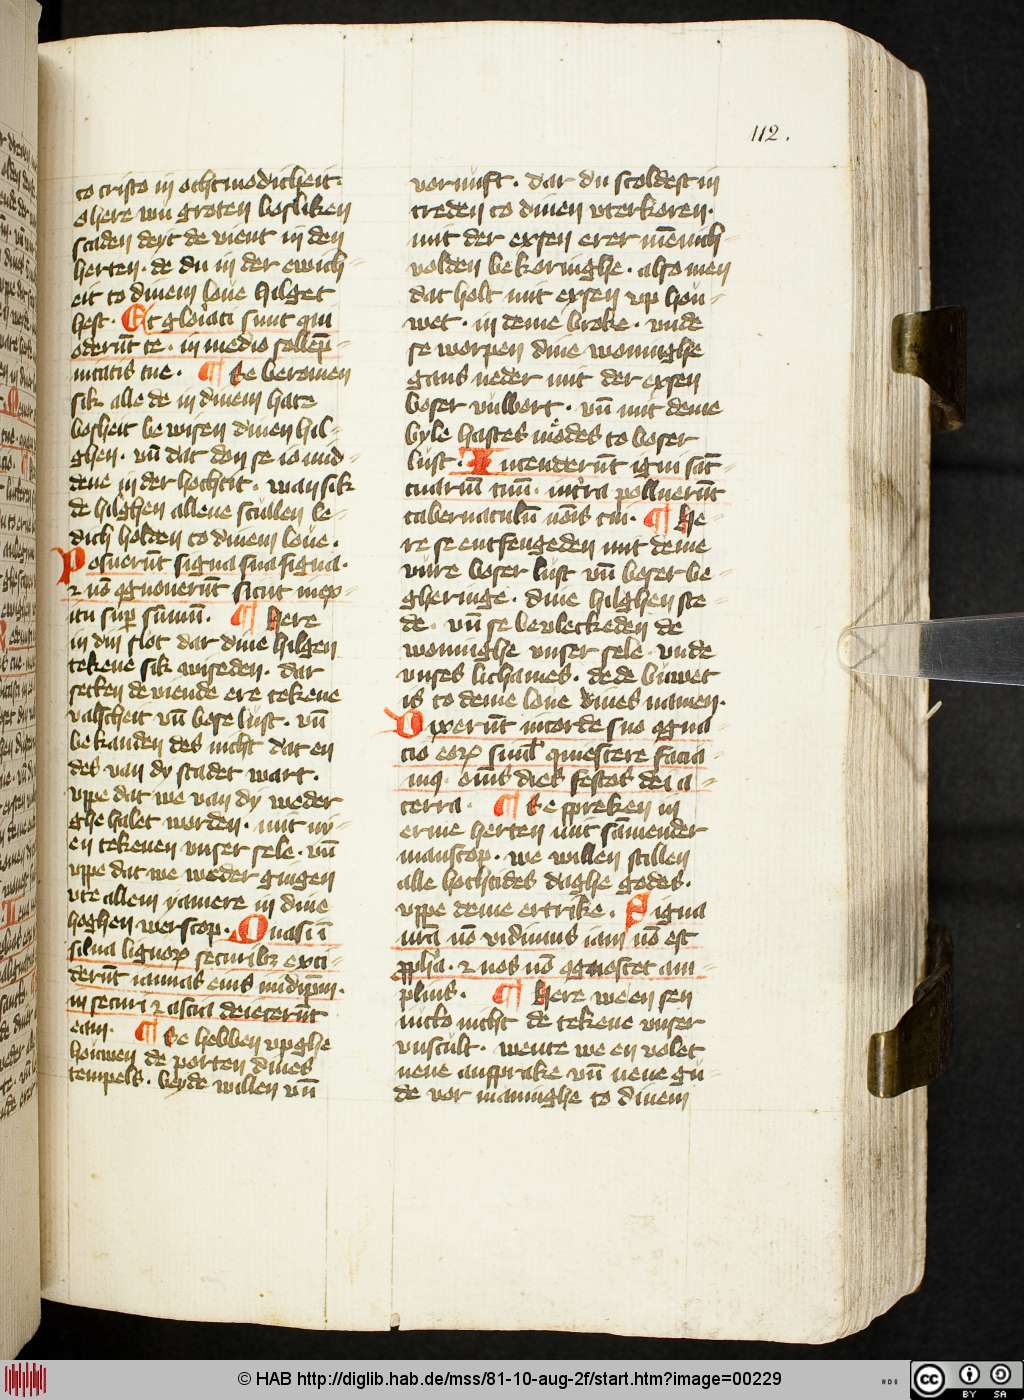 112.
to cristo in othmodicheit·
o here wu groten bosliken
scaden deyt de vient in den
herten· de du in der ewich-
eit to dinem loue hilget
hest· Et gloriati sunt qui
oderūt te· in medio sollep̄-
nitatis tue· ¶ Se beromen
sik alle de in dinem hate
bosheit bewisen dinen hil-
ghen· vn̄ dat don se io mid-
dene in der hochtit· wan sik
de hilghen allene scullen le-
dich holden to dinem loue·
Posuerūt signa sua signa·
⁊ nō ꝯgnouerūt sicut in ex-
itu sup̄ sūmū· ¶ Here
in din slot dar dine hilgen
tekene sik wiseden· dar
setten de viende ere tekene
valscheit vn̄ bose lust· vn̄
bekanden des nicht dat en
des van dy stadet wart·
vppe dat we van dy weder
ghehalet worden· mit ny-
en tekenen vnser sele· vn̄
vppe dat we weder gingen
vte allem yamere in dine
hoghen werscop· Quasi ī
silua lignoꝝ securibꝫ exci-
derūt ianuas eius in idip̄m·
in securi ⁊ ascia deiecerūt
eam· ¶ Se hebben vpghe
houwen de porten dines
tempels· beyde willen vn̄
vornuft· dar du scoldest in
treden to dinen vterkoren·
mit der exsen erer mēnich-
volden bekoringhe· also men
dat holt mit exsen vp hou-
wet· in deme broke· vnde
se worpen dine woninghe
gans neder mit der exsen
boser vulbort· vn̄ mit deme
byle hastes modes to boser
lust· Incenderūt igni sāc-
tuariū tuū· in t̄ra polluerūt
tabernaculū nōis tui· ¶ He-
re se entfengeden mit deme
vure boser lust vn̄ boser be-
gheringe· dine hilghen ste-
de· vn̄ se bevleckeden de
woninghe vnser sele· vnde
vnses lichames· de de buwet
is to deme loue dines namen·
Dixerūt in corde suo ꝯgna
cio eoꝝ simul quiescere facia
mꝰ om̄s dies festos dei a-
terra· ¶ Se spreken in
erme herten mit sāmender
manscop· we willen stillen
alle hochtides daghe godes·
vppe deme ertrike· Signa
nr̄a nō vidimus iam nō est
ꝓph̄a· ⁊ nos nō ꝯgnoscet am-
plius· ¶ Here we en sen
nicto nicht de tekene vnser
vnscult· wente we en volet
nene ansprake vn̄ nene gu-
de vor maninghe to dinem
© HAB http://diglib.hab.de/mss/81-10-aug-2f/start.htm?image=00229
cc
BY SA